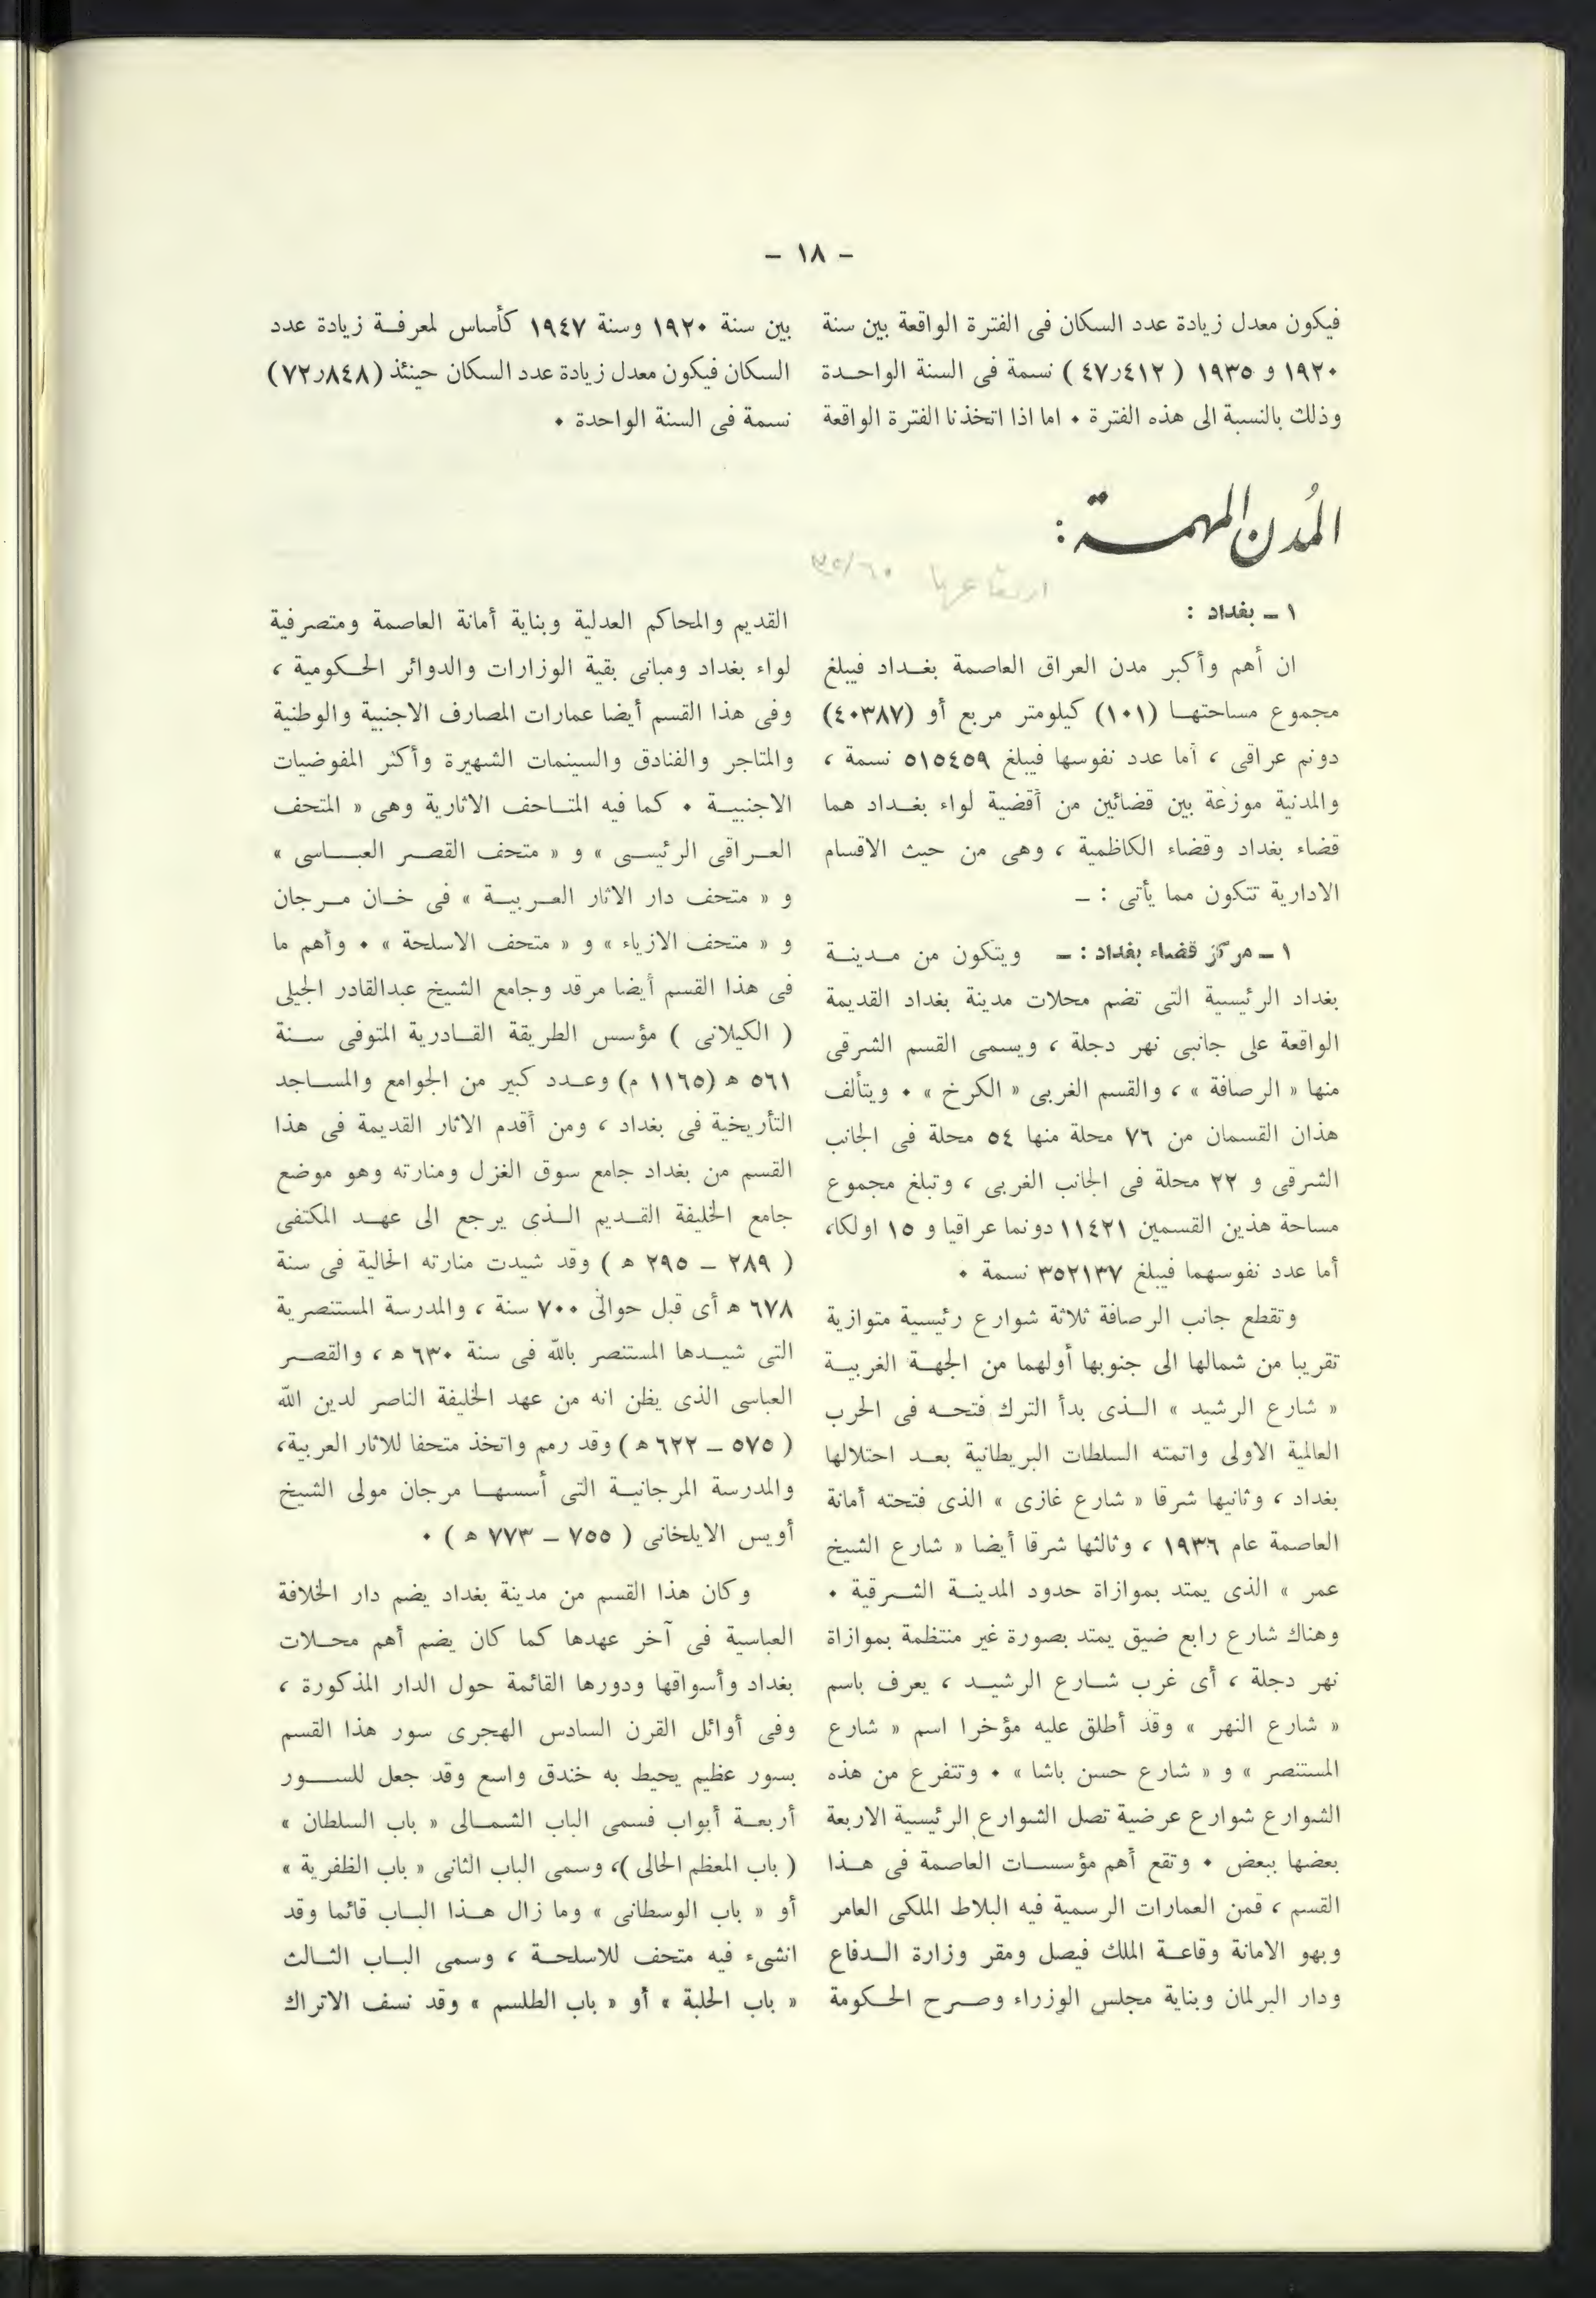 - ١٨ -
فيكون معدل زيادة عدد السكان فى الفترة الواقعة بين سنة
١٩٢٠ و ١٩٣٥ ( ٤٧ر٤١٢ ) نسمة فى السنة الواحـدة
وذلك بالنسبة الى هذه الفترة ٠ اما اذا اتخذنا الفترة الواقعة
بين سنة ١٩٢٠ وسنة ١٩٤٧ كأساس لمعرفـة زيادة عدد
السكان فيكون معدل زيادة عدد السكان حينئذ (٧٢ر٨٤٨)
نسمة فى السنة الواحدة ٠
المُدن المهمـة :
ارتفاعها
١ ــ بغداد :
ان أهم وأكبر مدن العراق العاصمة بغـداد فيبلغ
مجموع مساحتهـا (١٠١) كيلومتر مربع أو (٤٠٣٨٧)
دونم عراقى ، أما عدد نفوسها فيبلغ ٥١٥٤٥٩ نسمة ،
والمدنية موزعة بين قضائين من أقضية لواء بغـداد هما
قضاء بغداد وقضاء الكاظمية ، وهى من حيث الاقسام
الادارية تتكون مما يأتى : ــ
١ ــ مركز قضاء بغداد : ــ ويتكون من مـدينـة
بغداد الرئيسية التى تضم محلات مدينة بغداد القديمة
الواقعة على جانبى نهر دجلة ، ويسمى القسم الشرقى
منها « الرصافة » ، والقسم الغربى « الكرخ » ٠ ويتألف
هذان القسمان من ٧٦ محلة منها ٥٤ محلة فى الجانب
الشرقى و ٢٢ محلة فى الجانب الغربى ، وتبلغ مجموع
مساحة هذين القسمين ١١٤٢١ دونما عراقيا و ١٥ اولكا،
أما عدد نفوسهما فيبلغ ٣٥٢١٣٧ نسمة ٠
وتقطع جانب الرصافة ثلاثة شوارع رئيسية متوازية
تقريبا من شمالها الى جنوبها أولهما من الجهـة الغربيـة
« شارع الرشيد » الـذى بدأ الترك فتحـه فى الحرب
العالمية الاولى واتمته السلطات البريطانية بعـد احتلالها
بغداد ، وثانيها شرقا « شارع غازى » الذى فتحته أمانة
العاصمة عام ١٩٣٦ ، وثالثها شرقا أيضا « شارع الشيخ
عمر » الذى يمتد بموازاة حدود المدينـة الشـرقية ٠
وهناك شارع رابع ضيق يمتد بصورة غير منتظمة بموازاة
نهر دجلة ، أى غرب شـارع الرشيـد ، يعرف باسم
« شارع النهر » وقد أطلق عليه مؤخرا اسم « شارع
المستنصر » و « شارع حسن باشا » ٠ وتتفرع من هذه
الشوارع شوارع عرضية تصل الشوارع الرئيسية الاربعة
بعضها ببعض ٠ وتقع أهم مؤسسـات العاصمة فى هـذا
القسم ، فمن العمارات الرسمية فيه البلاط الملكى العامر
وبهو الامانة وقاعـة الملك فيصل ومقر وزارة الـدفاع
ودار البرلمان وبناية مجلس الوزراء وصـرح الحـكومة
القديم والمحاكم العدلية وبناية أمانة العاصمة ومتصرفية
لواء بغداد ومبانى بقية الوزارات والدوائر الحـكومية ،
وفى هذا القسم أيضا عمارات المصارف الاجنبية والوطنية
والمتاجر والفنادق والسينمات الشهيرة وأكثر المفوضيات
الاجنبيـة ٠ كما فيه المتـاحف الاثارية وهى « المتحف
العـراقى الرئيسـى » و « متحف القصـر العبـاسى »
و « متحف دار الاثار العـربيـة » فى خـان مـرجان
و « متحف الازياء » و « متحف الاسلحة » ٠ وأهم ما
فى هذا القسم أيضا مرقد وجامع الشيخ عبدالقادر الجيلى
( الكيلانى ) مؤسس الطريقة القـادرية المتوفى سـنة
٥٦١ ﻫ (١١٦٥ م) وعـدد كبير من الجوامع والمسـاجد
التأريخية فى بغداد ، ومن أقدم الاثار القديمة فى هذا
القسم من بغداد جامع سوق الغزل ومنارته وهو موضع
جامع الخليفة القـديم الـذى يرجع الى عهـد المكتفى
( ٢٨٩ ــ ٢٩٥ ﻫ ) وقد شيدت منارته الحالية فى سنة
٦٧٨ ﻫ أى قبل حوالى ٧٠٠ سنة ، والمدرسة المستنصرية
التى شيـدها المستنصر بالله فى سنة ٦٣٠ ﻫ ، والقصـر
العباسى الذى يظن انه من عهد الخليفة الناصر لدين الله
( ٥٧٥ ــ ٦٢٢ ﻫ ) وقد رمم واتخذ متحفا للاثار العربية،
والمدرسة المرجانيـة التى أسسهـا مرجان مولى الشيخ
أويس الايلخانى ( ٧٥٥ ــ ٧٧٣ ﻫ ) ٠
وكان هذا القسم من مدينة بغداد يضم دار الخلافة
العباسية فى آخر عهدها كما كان يضم أهم محـلات
بغداد وأسواقها ودورها القائمة حول الدار المذكورة ،
وفى أوائل القرن السادس الهجرى سور هذا القسم
بسور عظيم يحيط به خندق واسع وقد جعل للسـور
أربعـة أبواب فسمى الباب الشمـالى « باب السلطان »
( باب المعظم الحالى )، وسمى الباب الثانى « باب الظفرية »
أو « باب الوسطانى » وما زال هـذا البـاب قائما وقد
انشىء فيه متحف للاسلحـة ، وسمى البـاب الثـالث
« باب الحلبة » أو « باب الطلسم » وقد نسف الاتراك